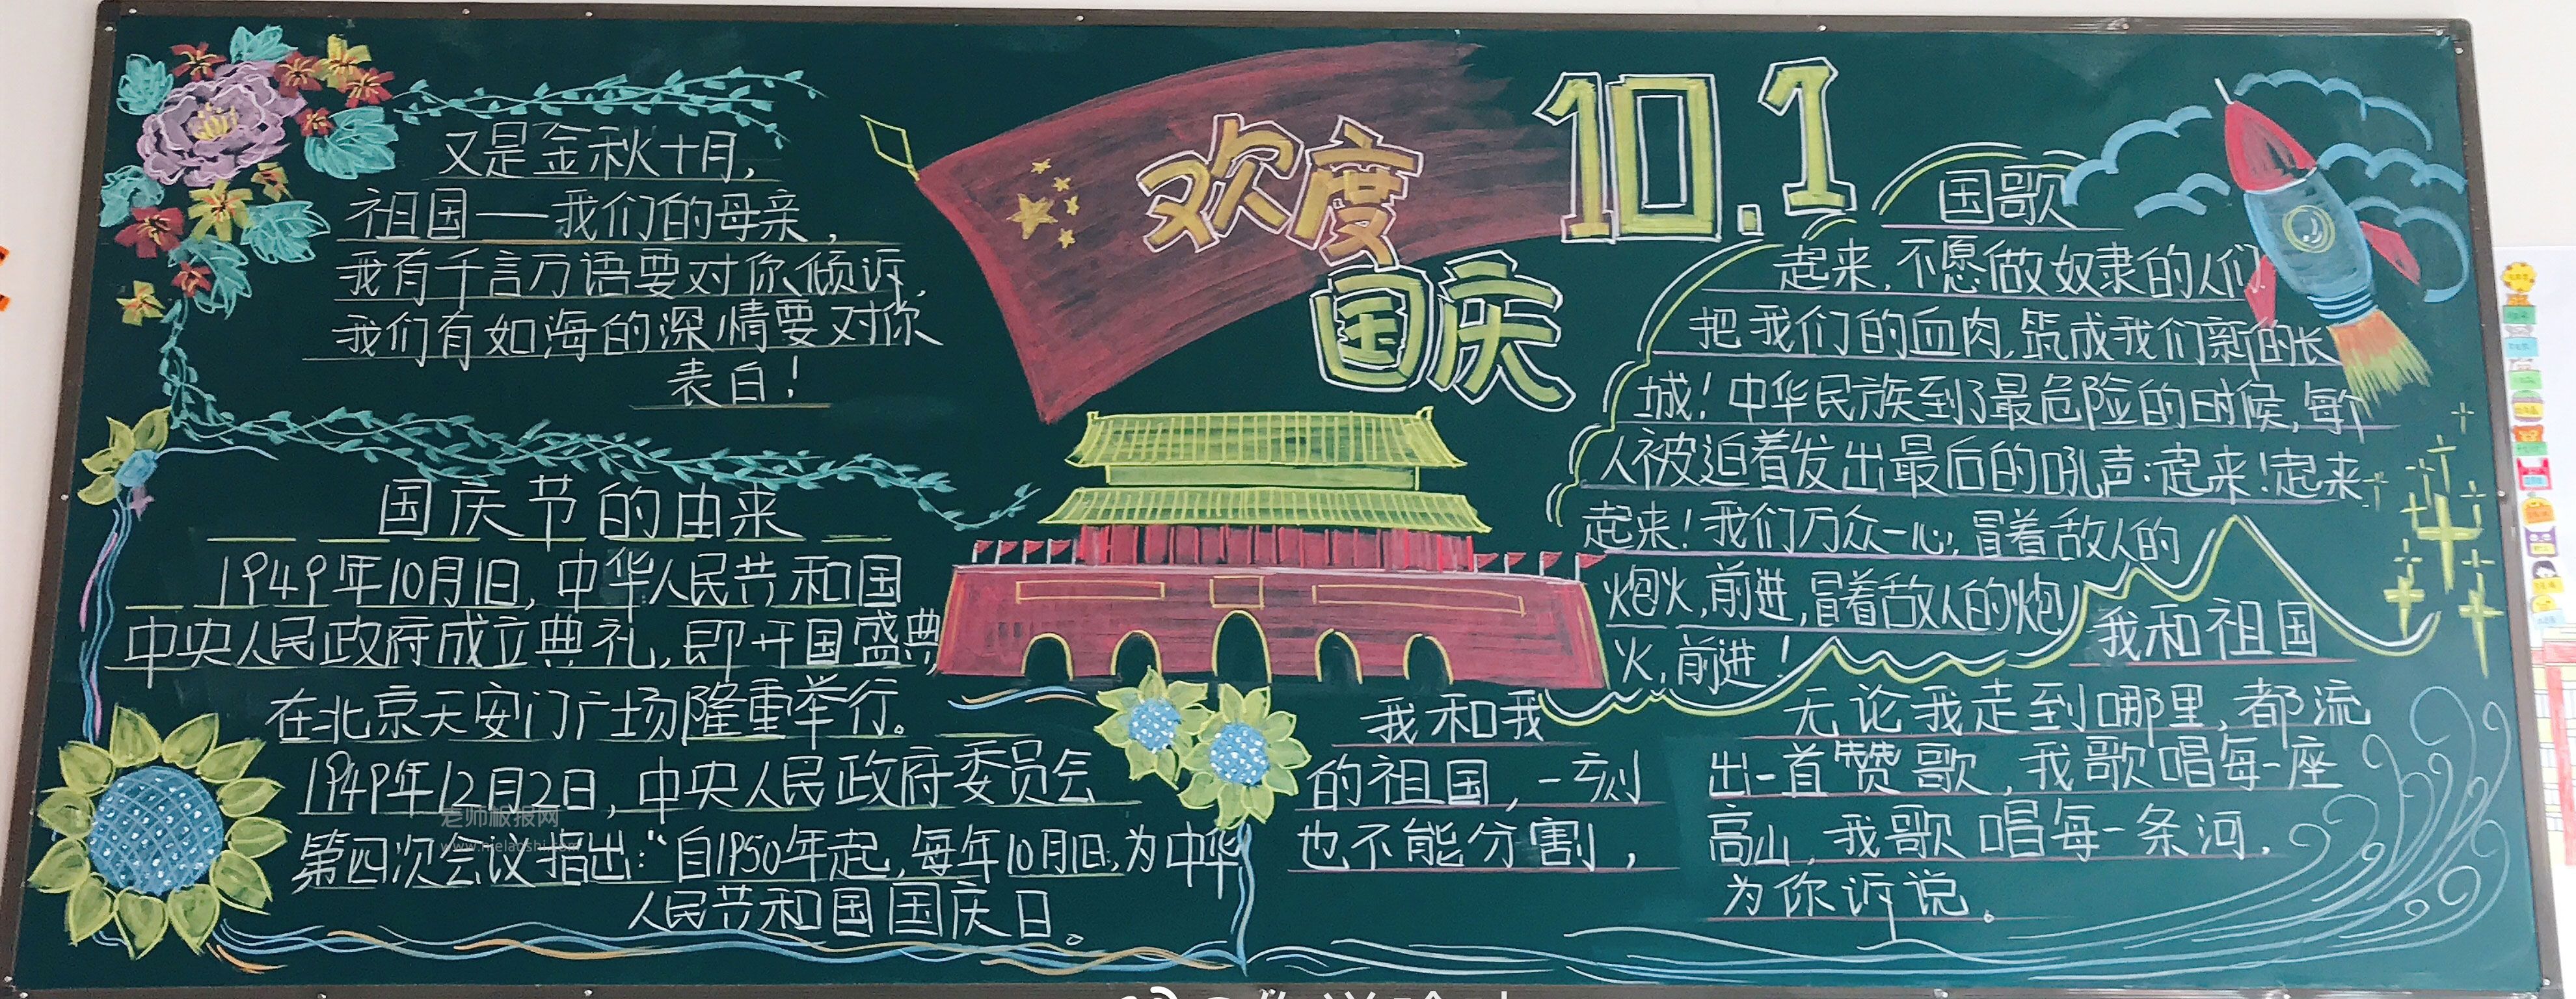 欢度
国庆
10.1
又是金秋十月，
祖国——我们的母亲，
我有千言万语要对你倾诉，
我们有如海的深情要对你
表白！
国庆节的由来
1949年10月1日，中华人民共和国
中央人民政府成立典礼，即开国盛典
在北京天安门广场隆重举行。
1949年12月2日，中央人民政府委员会
第四次会议指出：“自1950年起，每年10月1日，为中华
人民共和国国庆日。
国歌
起来，不愿做奴隶的人们
把我们的血肉，筑成我们新的长
城！中华民族到了最危险的时候，每个
人被迫着发出最后的吼声：起来！起来
起来！我们万众一心，冒着敌人的
炮火，前进，冒着敌人的炮
火，前进！
我和祖国
我和我
的祖国，一刻
也不能分割，
无论我走到哪里，都流
出一首赞歌，我歌唱每一座
高山，我歌唱每一条河，
为你诉说。
老师板报网